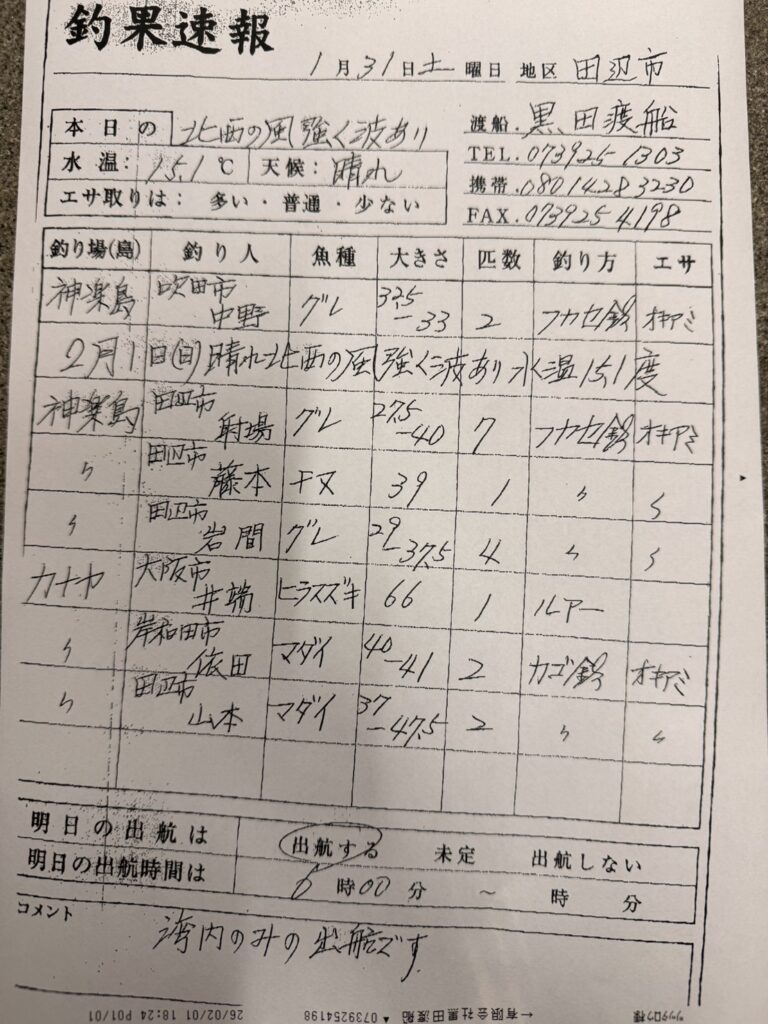 釣果速報
1月31日土曜日 地区 田辺市
本日の 北西の風強く波あり
水温: 15.1℃ 天候: 晴れ
エサ取りは: 多い・普通・少ない
渡船. 黒田渡船
TEL. 073925 1303
携帯. 080 1428 3230
FAX. 073925 4198
釣り場(島) 釣り人 魚種 大きさ 匹数 釣り方 エサ
神楽島 吹田市 中野 グレ 32.5-33 2 フカセ釣 オキアミ
2月1日(日)晴れ北西の風強く波あり水温15,1度
神楽島 田辺市 射場 グレ 27.5-40 7 フカセ釣 オキアミ
〃 田辺市 藤本 チヌ 39 1 〃 〃
〃 田辺市 岩間 グレ 29-37.5 4 〃 〃
カナヤ 大阪市 井端 ヒラスズキ 66 1 ルアー
〃 岸和田市 依田 マダイ 40-41 2 カゴ釣 オキアミ
〃 田辺市 山本 マダイ 37-47.5 2 〃 〃
明日の出航は 出航する 未定 出航しない
明日の出航時間は 6時00分 ～ 時 分
コメント
湾内のみの出航です
ツリタロウ様 ←有限会社黒田渡船 ▲0739254198 26/02/01 18:24 P01/01